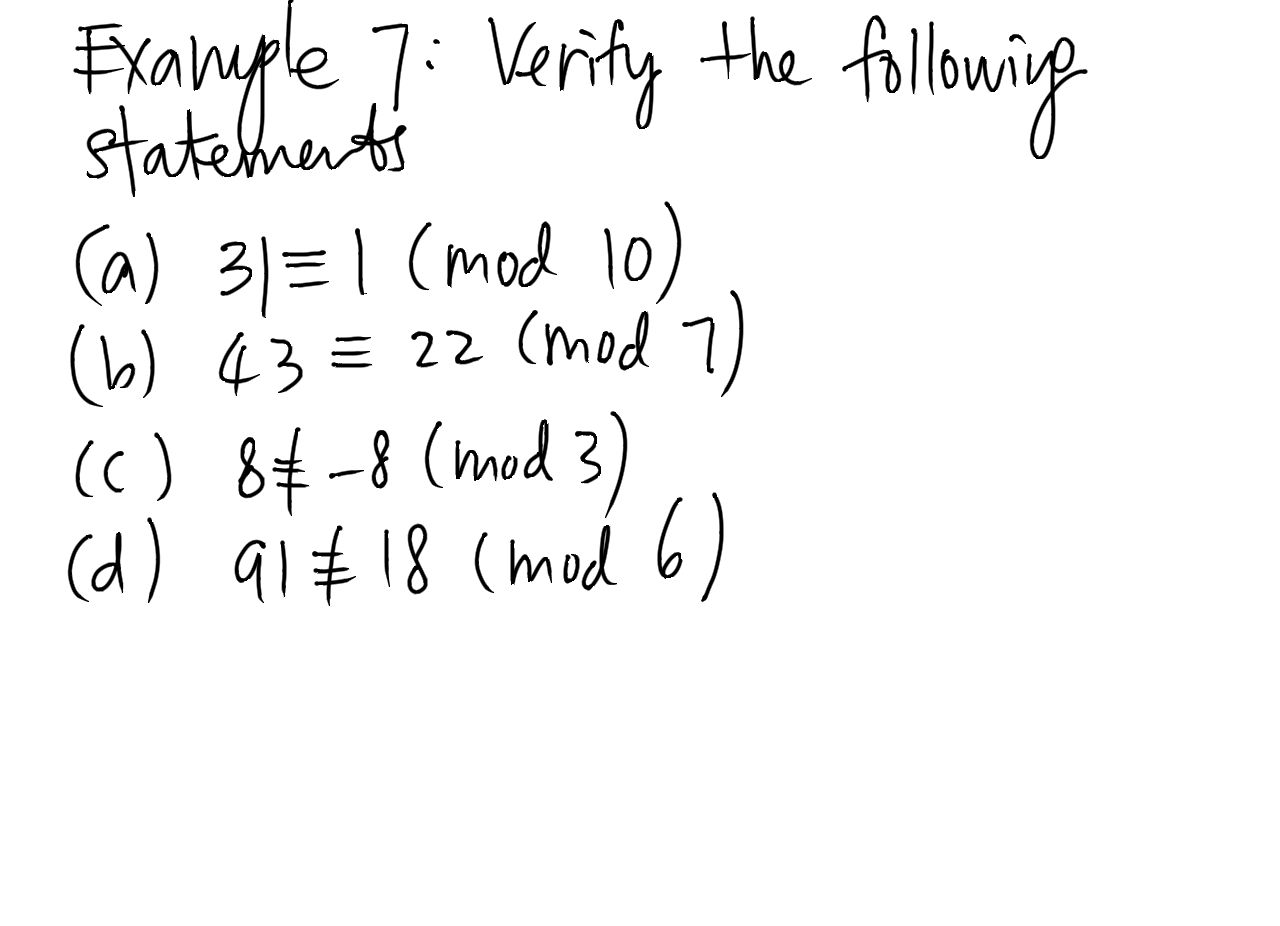 Example 7: Verify the following
statements
(a) 31 ≡ 1 (mod 10)
(b) 43 ≡ 22 (mod 7)
(c) 8 ≢ -8 (mod 3)
(d) 91 ≢ 18 (mod 6)